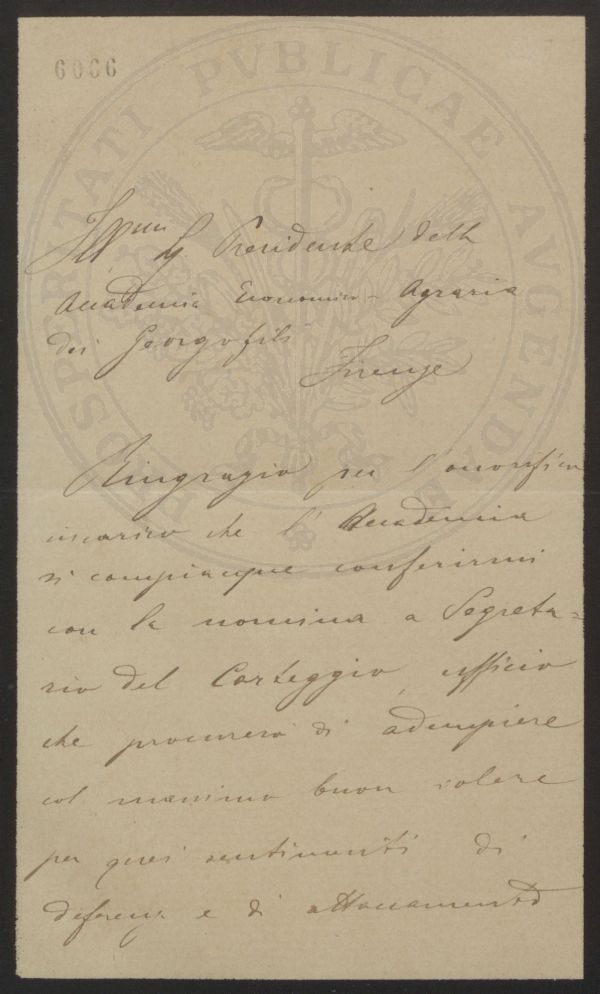 6066
PROSPERITATI PVBLICAE AVGENDAE
Illmo Sig. Presidente della
Accademia Economico-Agraria
dei Georgofili
Firenze
Ringrazio per l'onorifico
incarico che l'Accademia
si compiacque conferirmi
con la nomina a Segreta=
rio del Carteggio, ufficio
che procurerò di adempiere
col massimo buon volere
per quei sentimenti di
deferenza e di attaccamento